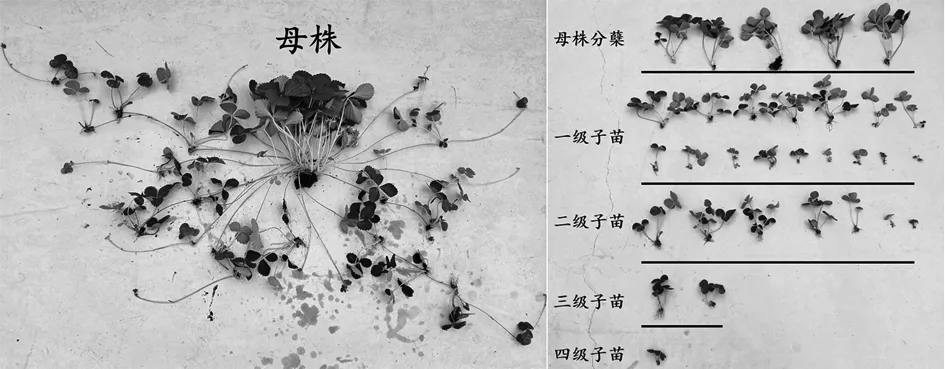 母株
母株分蘖
一级子苗
二级子苗
三级子苗
四级子苗